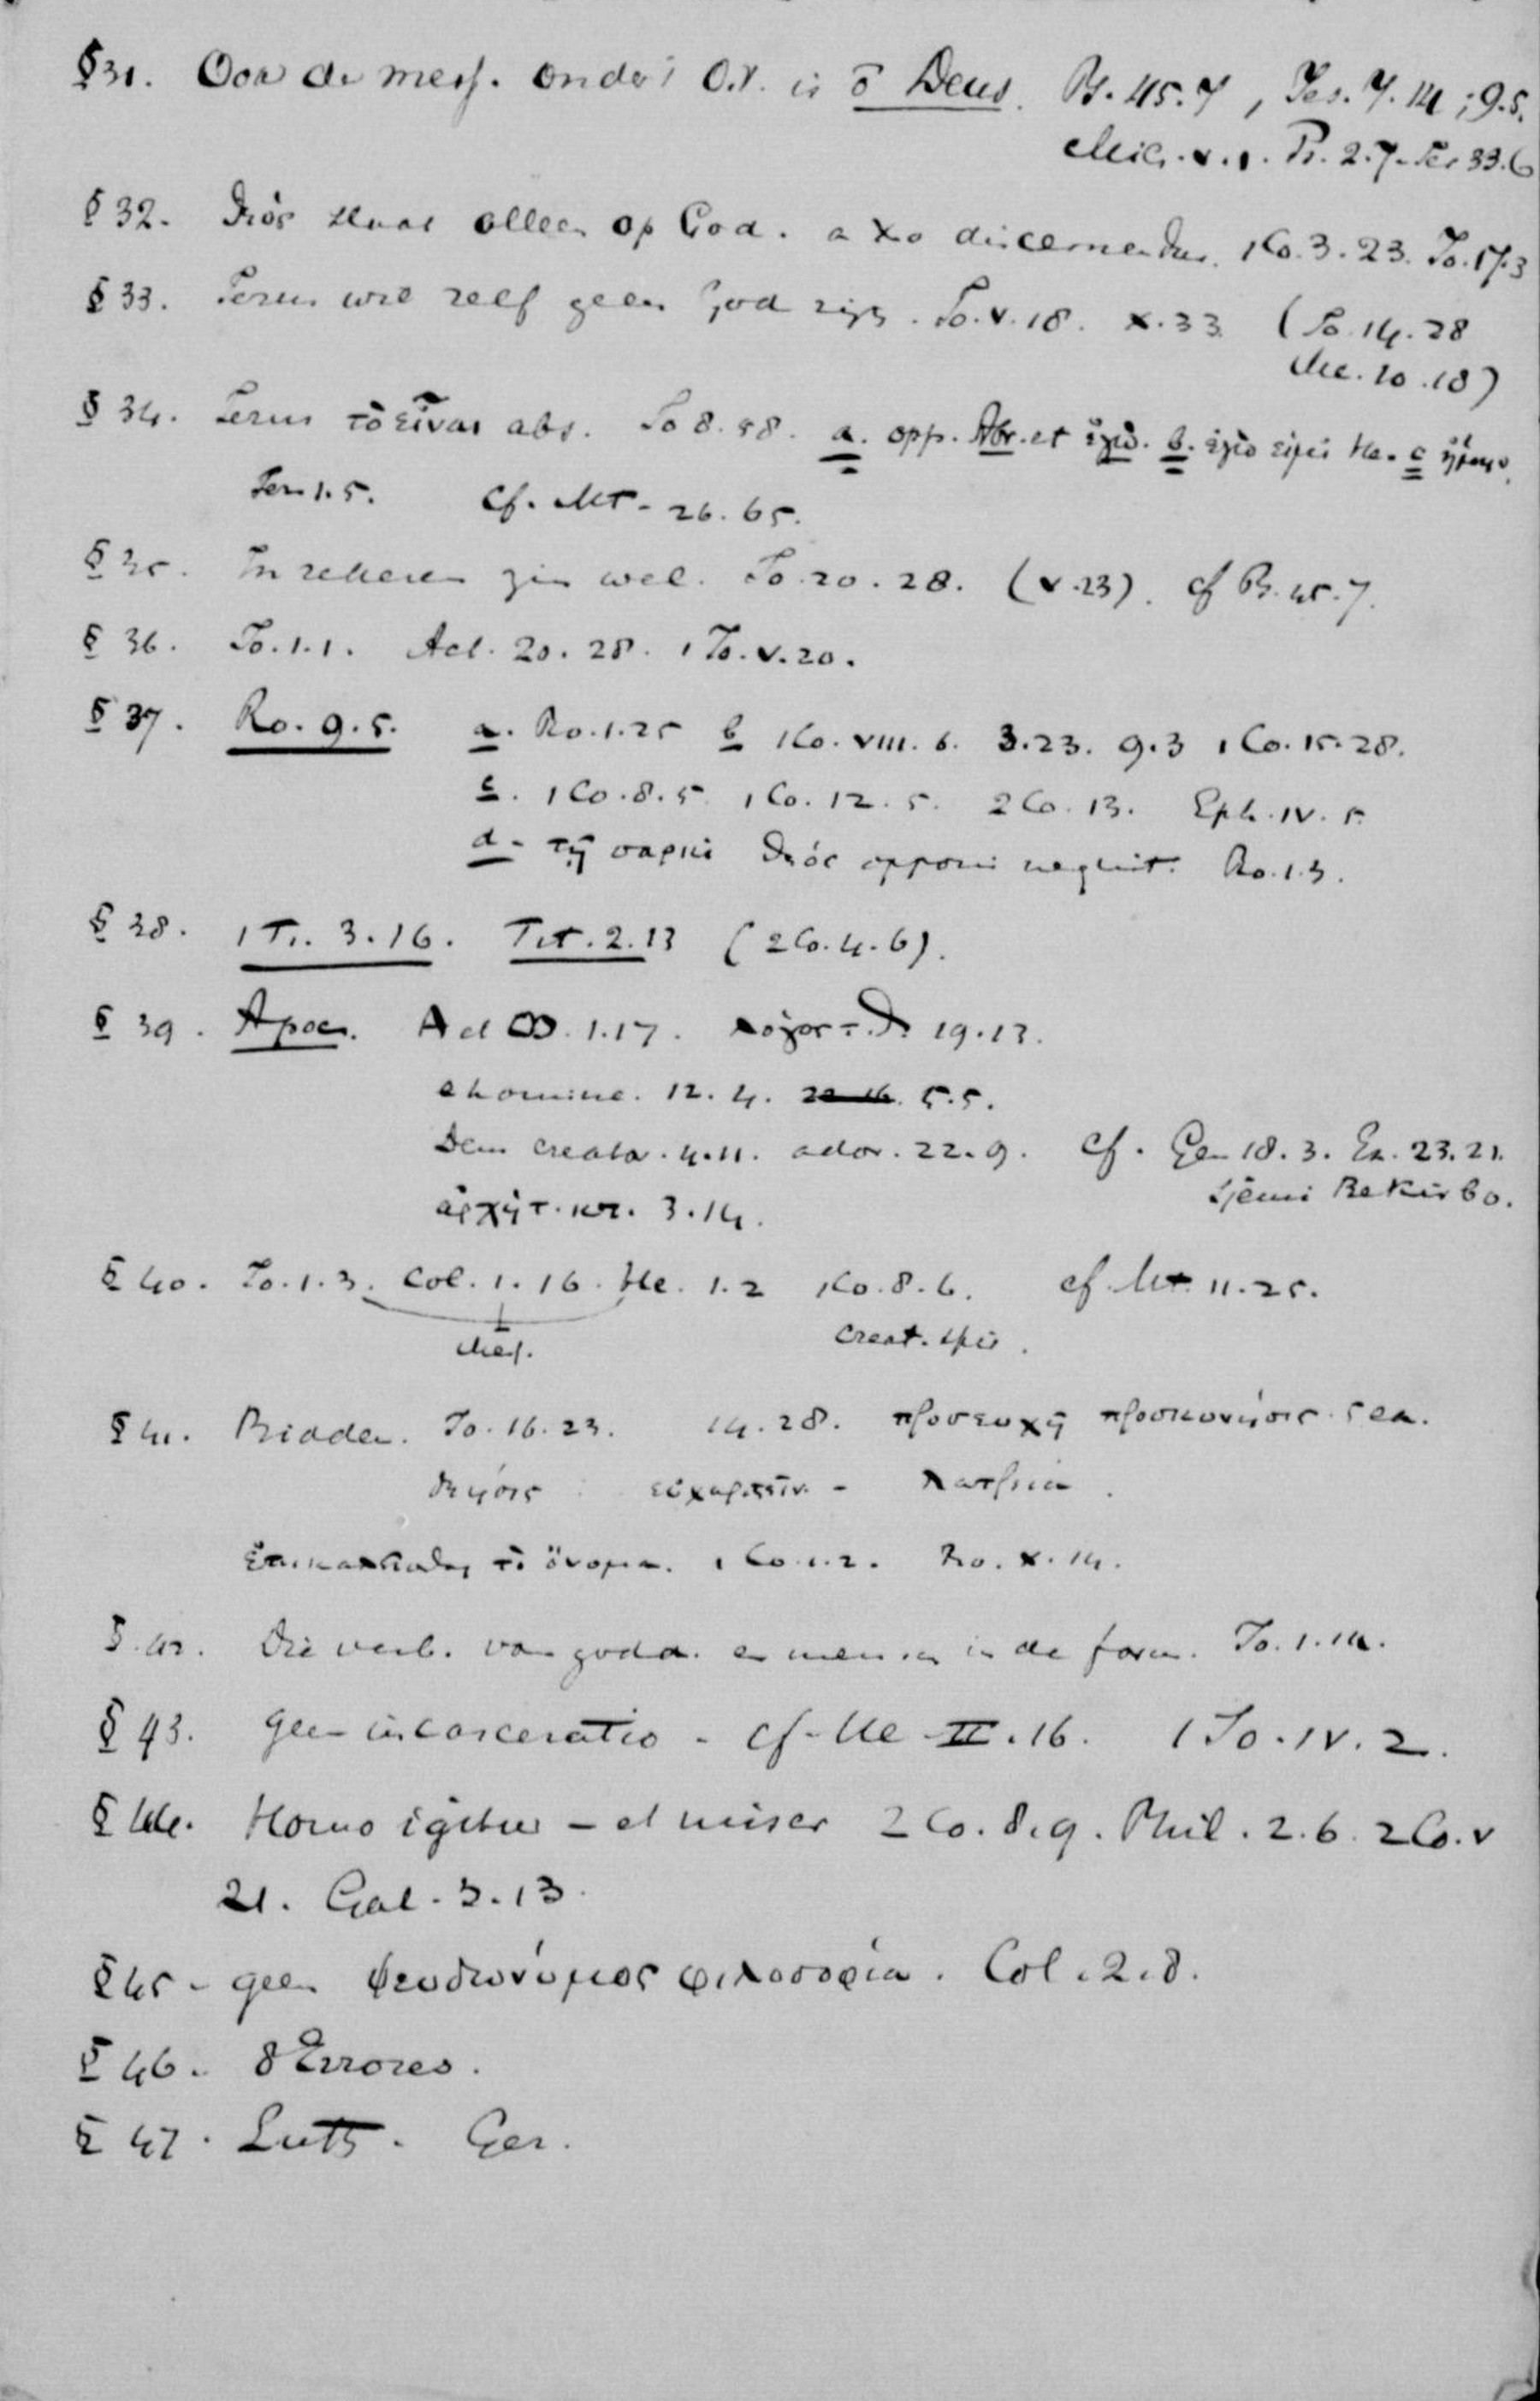 § 31. Ook de mess. onder 't O.V. is ō Deus. Ps. 45.7, Jes. 7.14; 9.5.
Mich. v.1. Ps. 2.7. Jer 33.6
§ 32. Θεός slaat alleen op God. a Χο discernendus. 1 Co. 3.23. Jo. 17.3
§ 33. Jezus wil zelf geen God zijn. Jo. v. 18. x. 33 (Jo. 14.28
Mc. 10.18)
§ 34. Jezus τὸ εἶναι abs. Jo 8.58. a. opp. Abr. et ἐγώ. b. ἐγώ εἰμι c
Jer 1.5. Cf. Mt. 26.65.
§ 35. In zekeren zin wel. Jo. 20.28. (v. 23). cf Ps. 45.7.
§ 36. Jo. 1.1. Act. 20.28. 1 Jo. v. 20.
§ 37. Ro. 9.5. a. Ro. 1.25 b 1 Co. VIII. 6. 3.23. 9.3 1 Co. 15.28.
c. 1 Co. 8.5. 1 Co. 12.5. 2 Co. 13. Eph. IV. 5.
d. τῇ σαρκί Θεός opponi nequit. Ro. 1.3.
§ 38. 1 Ti. 3.16. Tit. 2.13 (2 Co. 4.6).
§ 39. Apoc. A et Ω. 1.17. λόγος τ. Θ. 19.13.
e homine. 12.4. 22.16. 5.5.
Deus creator. 4.11. ador. 22.9. cf. Gen 18.3. Ex. 23.21.
ἀρχὴ τ. κτ. 3.14.
§ 40. Jo. 1.3. Col. 1.16. He. 1.2 1 Co. 8.6. cf. Mt. 11.25.
Mess. creat. spir.
§ 41. Bidden. Jo. 16.23. 14.28. προσευχή προσκύνησις
δέησις εὐχαριστεῖν - λατρεία.
ἐπικαλεῖσθαι τὸ ὄνομα. 1 Co. 1.2. Ro. x. 14.
§. 42. Die verb. van godd. en mensch in de form. Jo. 1.14.
§ 43. geen incarceratio - cf. He II. 16. 1 Jo. IV. 2.
§ 44. Homo igitur - et miser 2 Co. 8.9. Phil. 2.6. 2 Co. v
21. Gal. 3.13.
§ 45 - geen ψευδωνύμος φιλοσοφία. Col. 2.8.
§ 46. 8 Errores.
§ 47. Luth. Ger.